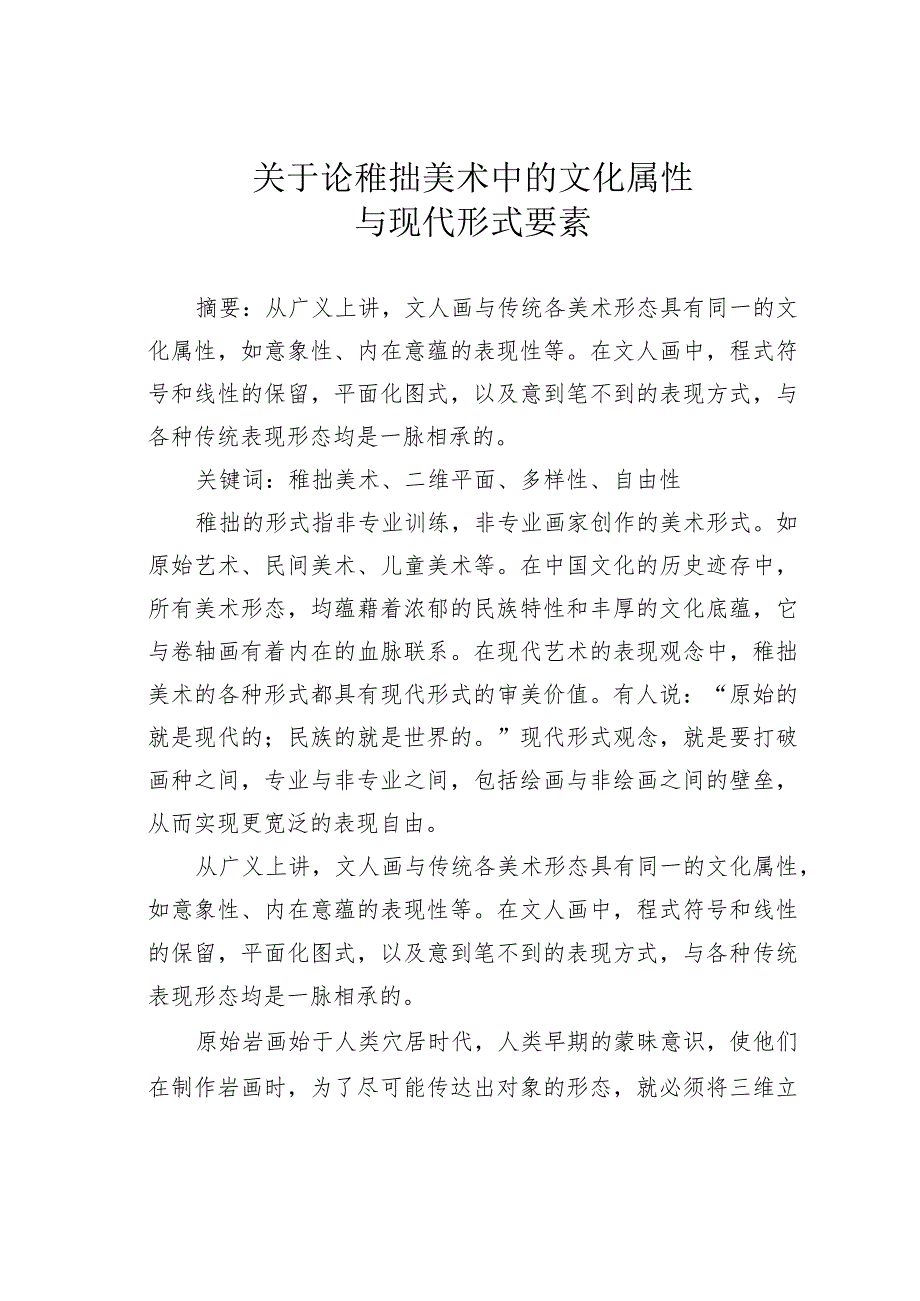 关于论稚拙美术中的文化属性
与现代形式要素
摘要：从广义上讲，文人画与传统各美术形态具有同一的文
化属性，如意象性、内在意蕴的表现性等。在文人画中，程式符
号和线性的保留，平面化图式，以及意到笔不到的表现方式，与
各种传统表现形态均是一脉相承的。
关键词：稚拙美术、二维平面、多样性、自由性
稚拙的形式指非专业训练，非专业画家创作的美术形式。如
原始艺术、民间美术、儿童美术等。在中国文化的历史迹存中，
所有美术形态，均蕴藉着浓郁的民族特性和丰厚的文化底蕴，它
与卷轴画有着内在的血脉联系。在现代艺术的表现观念中，稚拙
美术的各种形式都具有现代形式的审美价值。有人说：“原始的
就是现代的；民族的就是世界的。”现代形式观念，就是要打破
画种之间，专业与非专业之间，包括绘画与非绘画之间的壁垒，
从而实现更宽泛的表现自由。
从广义上讲，文人画与传统各美术形态具有同一的文化属性，
如意象性、内在意蕴的表现性等。在文人画中，程式符号和线性
的保留，平面化图式，以及意到笔不到的表现方式，与各种传统
表现形态均是一脉相承的。
原始岩画始于人类穴居时代，人类早期的蒙昧意识，使他们
在制作岩画时，为了尽可能传达出对象的形态，就必须将三维立